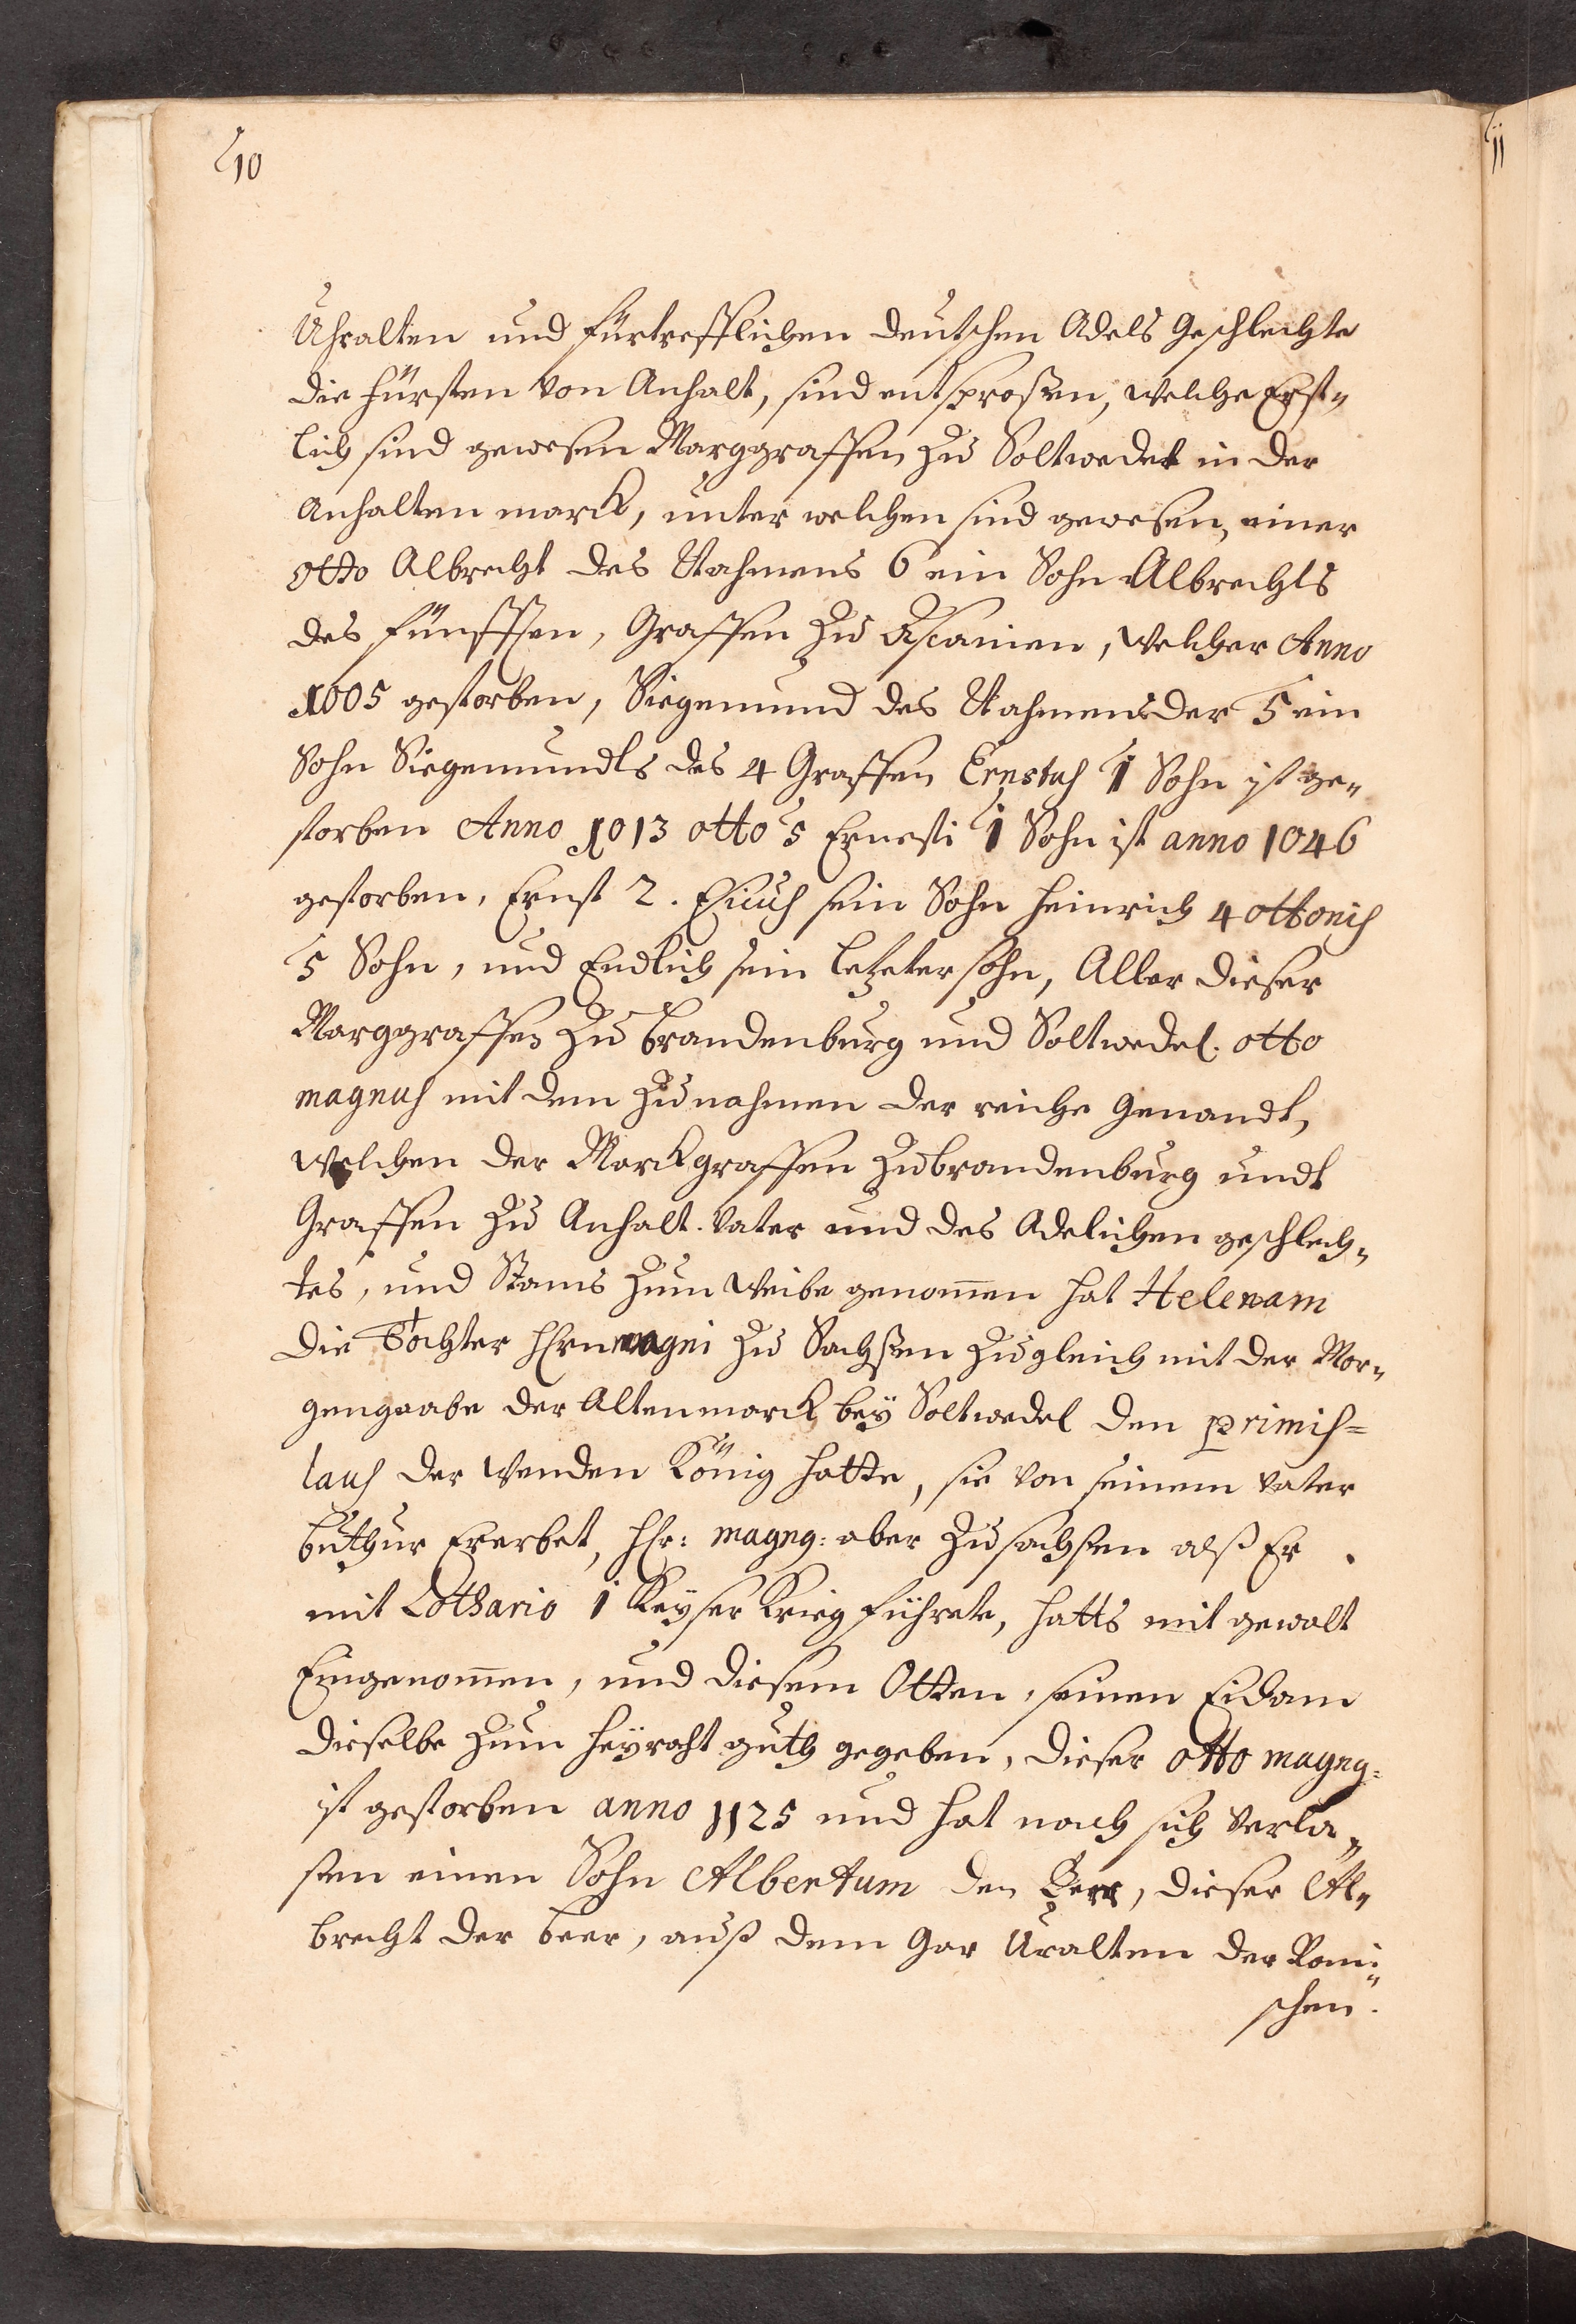 10
Uhralten und fürtrefflichen deutschen Adels Geschlechte
die fürsten von Anhalt, sind entsproßen, welche Erst„
lich sind gewesen Marggraffen zu Soltwedel in der
Anhalten marck, unter welchen sind gewesen, einer
otto Albrecht des Nahmens 6 ein Sohn Albrechts
des fünfften, Graffen zu Ascanien, welcher Anno
1005 gestorben, Siegemund des Nahmens der 5 ein
Sohn Siegemundts des 4 Graffen Ernstus 1 Sohn ist ge„
storben Anno 1013 otto 5 Ernesti 1 Sohn ist anno 1046
gestorben, Ernst 2. sein Sohn heinrich 4 ottonis
5 Sohn, und Endlich sein letzeter sohn, Aller dieser
Marggraffen zu brandenburg und Soltwedel. otto
magnus mit dem Zunahmen der reiche Genandt,
welchen der Marckgraffen zu brandenburg undt
Graffen zu Anhalt. Vater und des Adelichen geschlech„
tes, und Stams zum Weibe genom̄en hat Helenam
die Tochter hHrn magni zu Sachßen zugleich mit der Mor„
gengaabe der Altenmarck bey Soltwedel den primis=
laus der Wenden König hatte, sie von seinem Vater
buthur Ererbet, hHr: magng: aber zu sachsen alß Er
mit Lothario 1 Keyser Krieg führete, hatts mit gewalt
Eingenom̄en, und diesem Otten, seinen Eidam
dieselbe zum heyraht guth gegeben, dieser otto magng:
ist gestorben anno 1125 und hat nach sich verla„
sen einen Sohn Albertum den Beer, dieser Al„
brecht der beer, auß dem Gar Uralten der Romi„
schen.
11